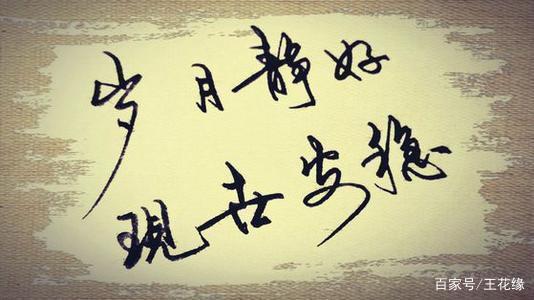 岁月静好
现世安稳
百家号/王花缘